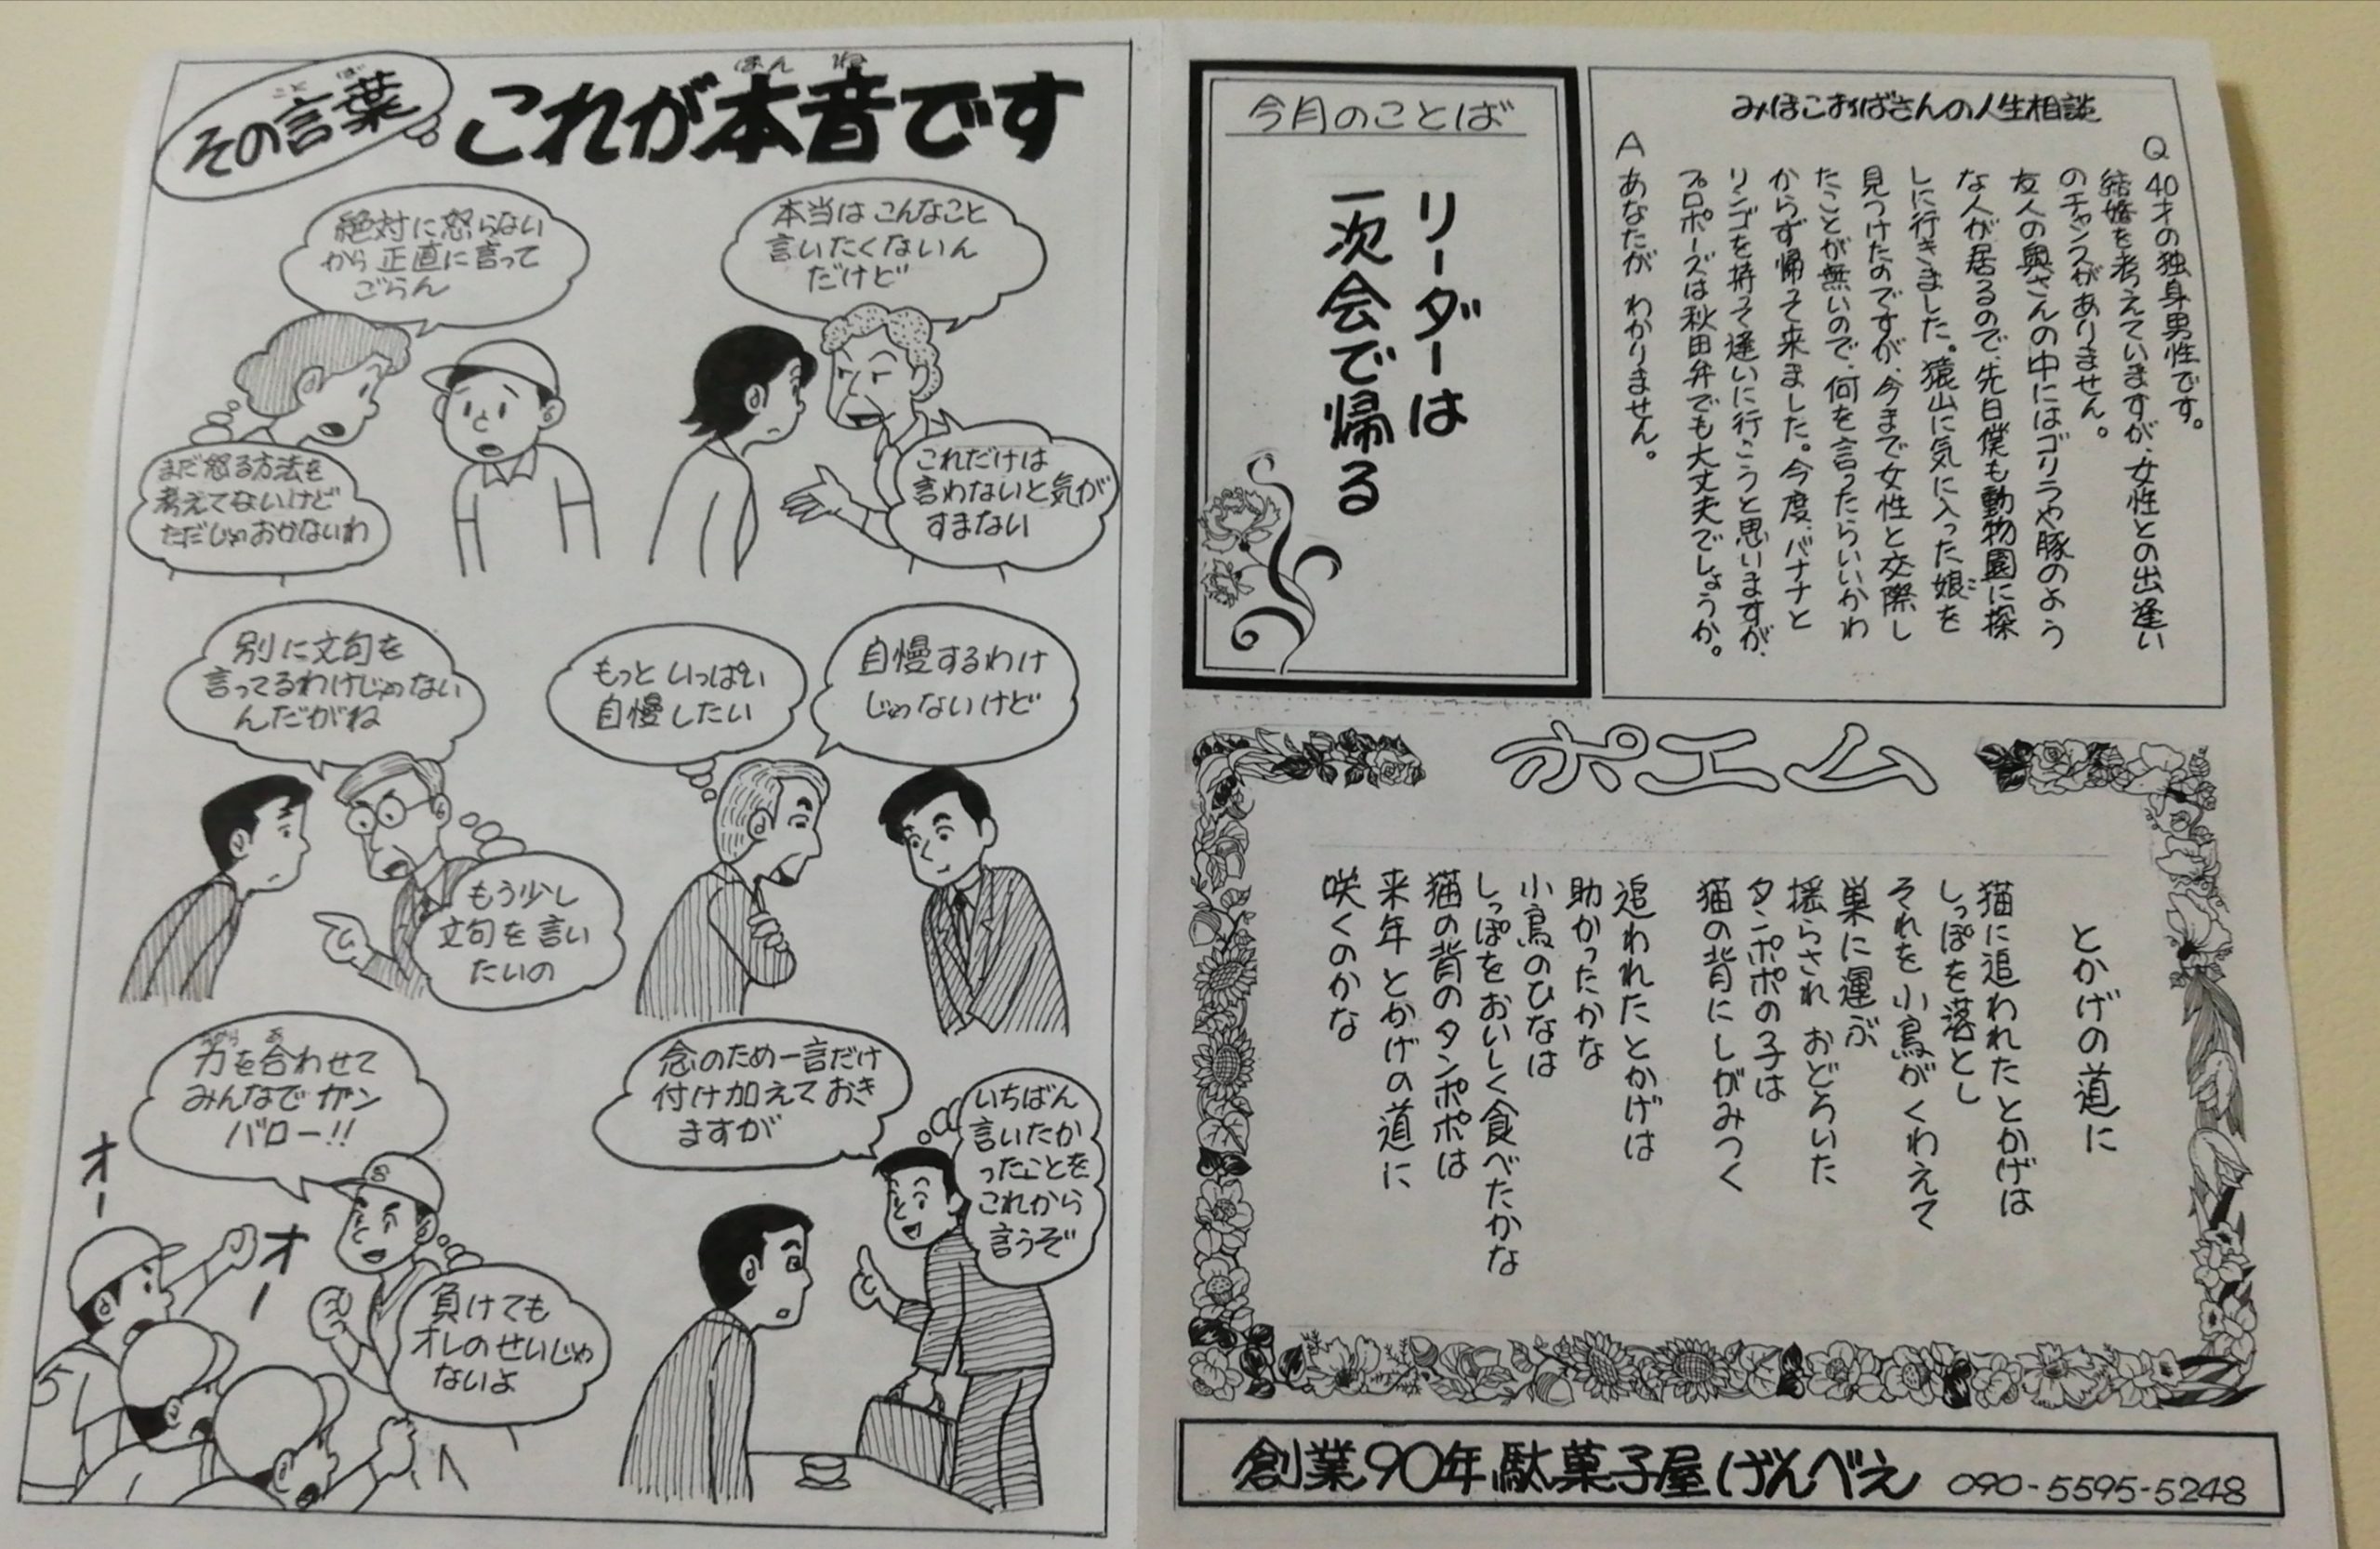 その言葉
ことば
これが本音です
ほんね
絶対に怒らない
から正直に言って
ごらん
まだ怒る方法を
考えてないけど
ただじゃおかないわ
本当はこんなこと
言いたくないん
だけど
これだけは
言わないと気が
すまない
別に文句を
言ってるわけじゃない
んだがね
もう少し
文句を言い
たいの
もっといっぱい
自慢したい
自慢するわけ
じゃないけど
力を合わせて
ちから あ
みんなでガン
バロー!!
オー
オー
負けても
オレのせいじゃ
ないよ
念のため一言だけ
付け加えておき
ますが
いちばん
言いたか
ったことを
これから
言うぞ
みほこおばさんの人生相談
Q 40才の独身男性です。
結婚を考えていますが、女性との出逢い
のチャンスがありません。
友人の奥さんの中にはゴリラや豚のよう
な人が居るので、先日僕も動物園に探
しに行きました。猿山に気に入った娘を
見つけたのですが、今まで女性と交際し
たことが無いので、何を言ったらいいかわ
からず帰って来ました。今度、バナナと
リンゴを持って逢いに行こうと思いますが、
プロポーズは秋田弁でも大丈夫でしょうか。
A あなたが わかりません。
今月のことば
リーダーは
一次会で帰る
ポエム
とかげの道に
猫に追われたとかげは
しっぽを落とし
それを小鳥がくわえて
巣に運ぶ
揺らされ おどろいた
タンポポの子は
猫の背にしがみつく
追われたとかげは
助かったかな
小鳥のひなは
しっぽをおいしく食べたかな
猫の背のタンポポは
来年とかげの道に
咲くのかな
創業90年駄菓子屋げんべえ 090-5595-5248